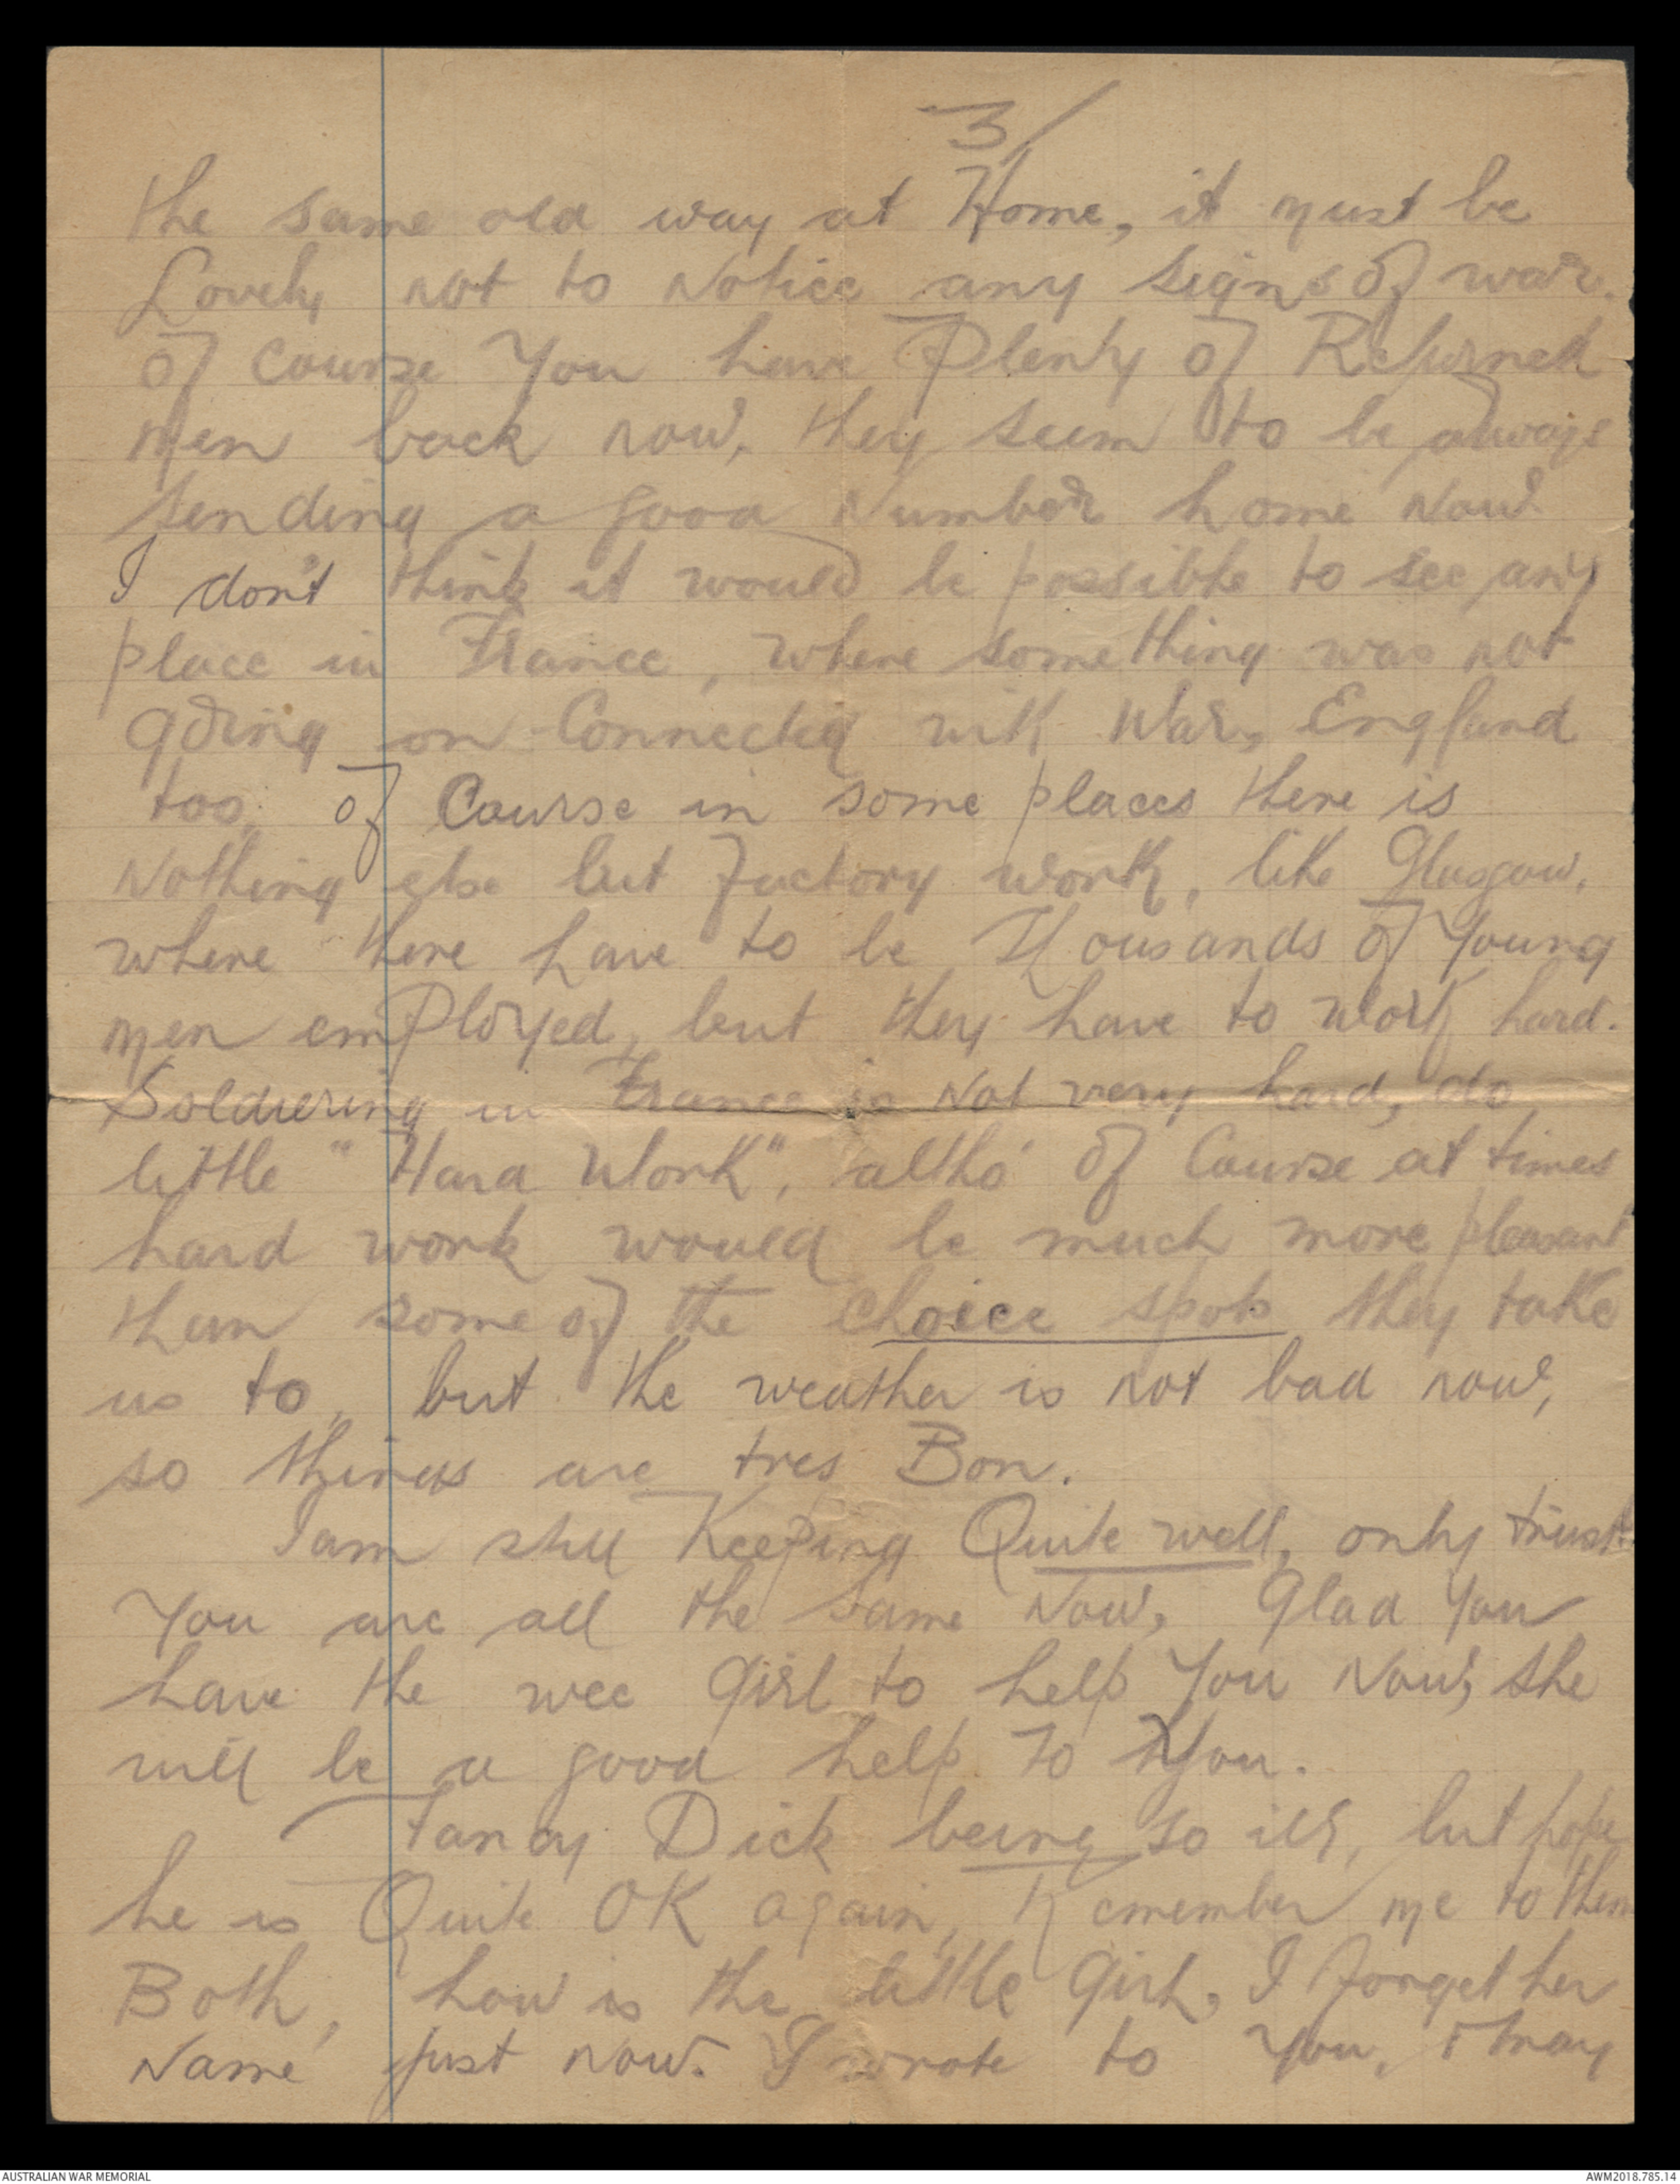 3/
the same old way at Home, it must be
Lovely not to Notice any signs of war.
of course You have Plenty of Returned
men back now, they seem to be always
sending a good Number home Now.
I don't think it would be possible to see any
place in France, where something was not
going on Connected with War, England
too. Of Course in some places there is
Nothing else but Factory work, like Glasgow,
where there have to be Thousands of Young
men emPloyed, but they have to work hard.
Soldiering in France is Not very hard, do
little "Hard Work", altho' of Course at times
hard work would be much more pleasant
than some of the choice spots they take
us to, but the weather is not bad now,
so things are tres Bon.
I am still KeePing Quite well, only trust
You are all the same Now, Glad You
have the wee Girl to help You Now, she
will be a good help To You.
Fancy Dick being so ill, but hope
he is Quite OK again, Remember me to them
Both, how is the little Girl, I Forget her
Name just now. I wrote to You, & May
AUSTRALIAN WAR MEMORIAL
AWM2018.785.14